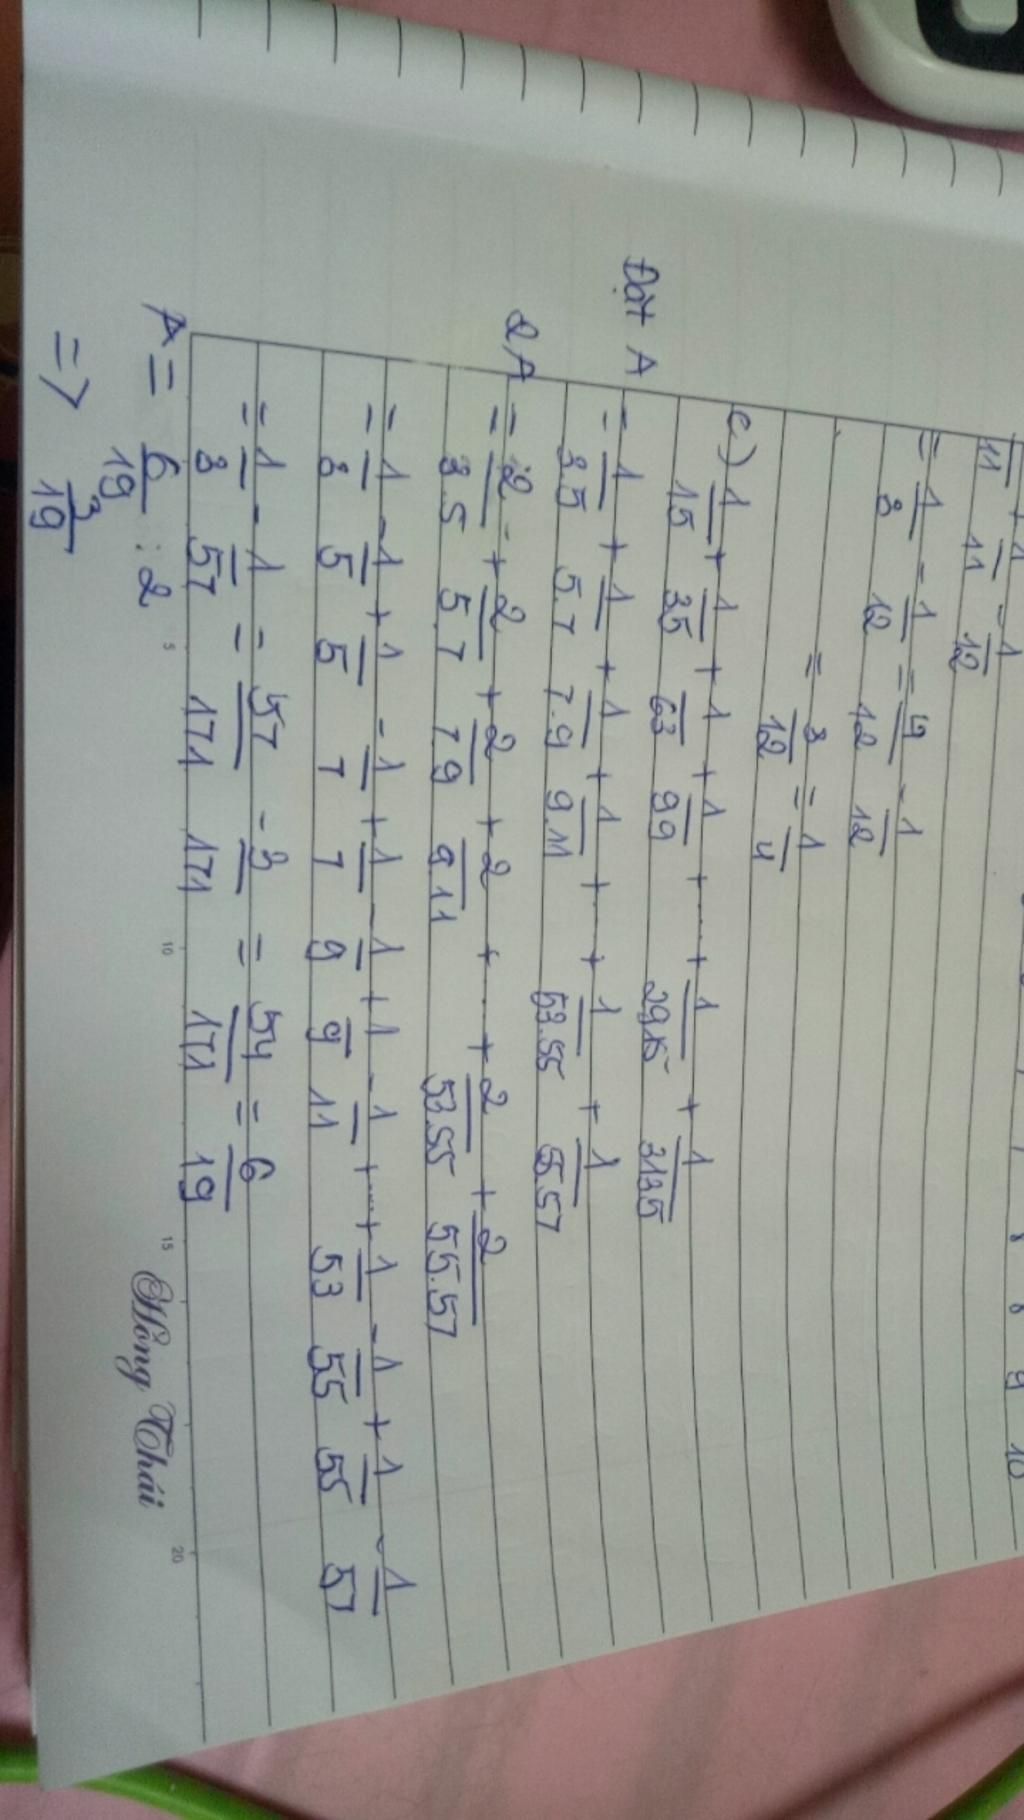 1/11 - 1/12
= 1/3 - 1/12 = 4/12 - 1/12
= 3/12 = 1/4
c) 1/15 + 1/35 + 1/63 + 1/99 + ..... + 1/2915 + 1/3135
Đặt A = 1/3.5 + 1/5.7 + 1/7.9 + 1/9.11 + ..... + 1/53.55 + 1/55.57
2A = 2/3.5 + 2/5.7 + 2/7.9 + 2/9.11 + ..... + 2/53.55 + 2/55.57
= 1/3 - 1/5 + 1/5 - 1/7 + 1/7 - 1/9 + 1/9 - 1/11 + ..... + 1/53 - 1/55 + 1/55 - 1/57
= 1/3 - 1/57 = 57/171 - 3/171 = 54/171 = 6/19
A = 6/19 : 2
=> 3/19
5 10 15 20
Hồng Thái